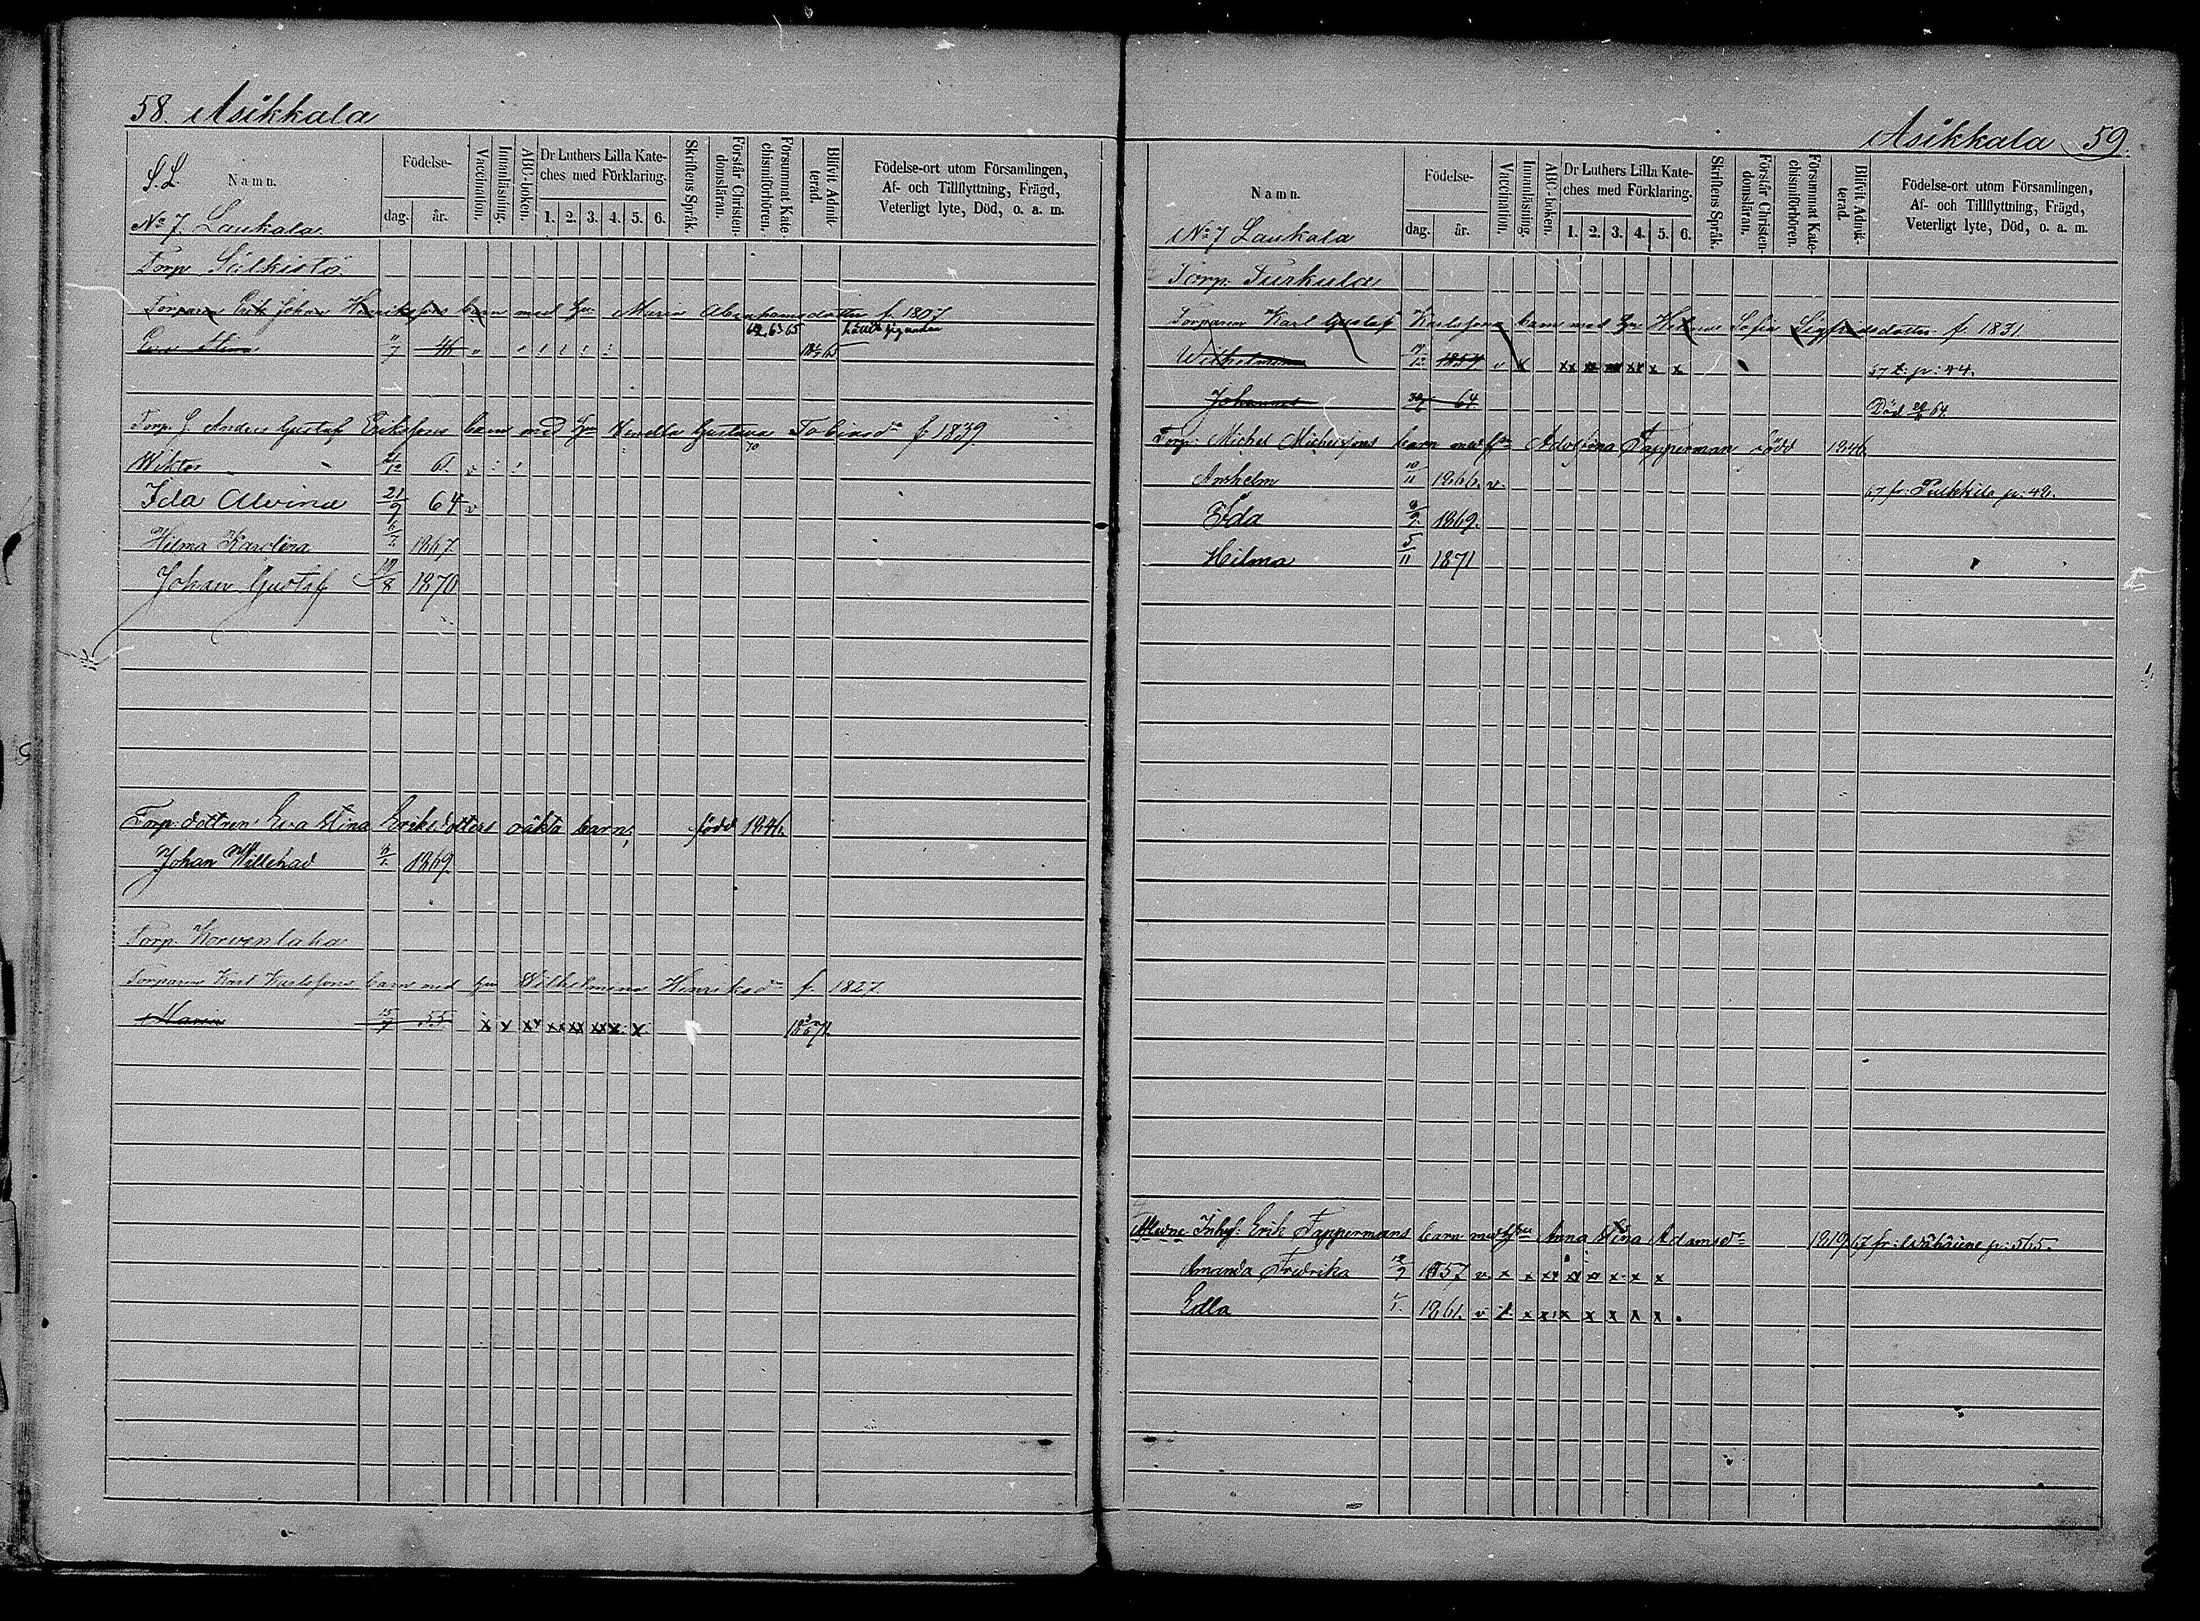 58. Asikkala
S.L.
Namn.
Födelse-
dag. år.
Vaccination.
Innanläsning.
ABC-boken.
Dr Luthers Lilla Kate-
ches med Förklaring.
1. 2. 3. 4. 5. 6.
Skriftens Språk.
Förstår Christen-
domsläran.
Försummat Kate-
chismiförhören.
Blifvit Admit-
terad.
Födelse-ort utom Församlingen,
Af- och Tillflyttning, Frägd,
Veterligt lyte, Död, o. a. m.
No 7 Laukala
Torp Sälkistö
Torparen Erik Johan Henrikssons barn med Hu Maria Abrahamsdotter f. 1807
62 63 65
Eva Stina 11/7 46
Torp. Anders Gustaf Erikssons barn med Hu Gustava Tobiasdr f 1839
70
Wiktor 21/12 61 v
Ida Alvina 21/9 64 v
Hilma Karolina 1867
Johan Gustaf 19/8 1870
Torp. dottren Eva Stina Eriksdotters oäkta barn, född 1846.
Johan Willehad 1869.
Torp. Korvenlaka
Torparen Karl Karlssons barn med Hu Wilhelmina Henriksdr f. 1827
Maria 15/7 55 x x xx xx xx xx x. x.
Asikkala 59.
Namn.
Födelse-
dag. år.
Vaccination.
Innanläsning.
ABC-boken.
Dr Luthers Lilla Kate-
ches med Förklaring.
1. 2. 3. 4. 5. 6.
Skriftens Språk.
Förstår Christen-
domsläran.
Försummat Kate-
chismiförhören.
Blifvit Admit-
terad.
Födelse-ort utom Församlingen,
Af- och Tillflyttning, Frägd,
Veterligt lyte, Död, o. a. m.
No 7 Laukala
Torp. Turkula
Torparen Karl Gustaf Karlssons barn med Hu Sofia Sigfridsdotter f. 1831
Wilhelmina 1857 v x xx xx xx xx x x 57 t. p: 44.
Johannes 64 Död 64.
Torp: Michel Michelssons barn med Hu Adolfina Tapperman född 1846
Anshelm 10/11 1866. v. 67 fr: Pulkkila p: 42.
Ida 1869.
Hilma 5/11 1871
Aflidne Inhys: Erik Tappermans barn med Hu Anna Stina Adamsdr 1819 67 fr: Wähäiine p: 565.
Amanda Fredrika 12/9 1857 v. x x xx xx xx x x x
Edla 1861. v x x x x x x x x